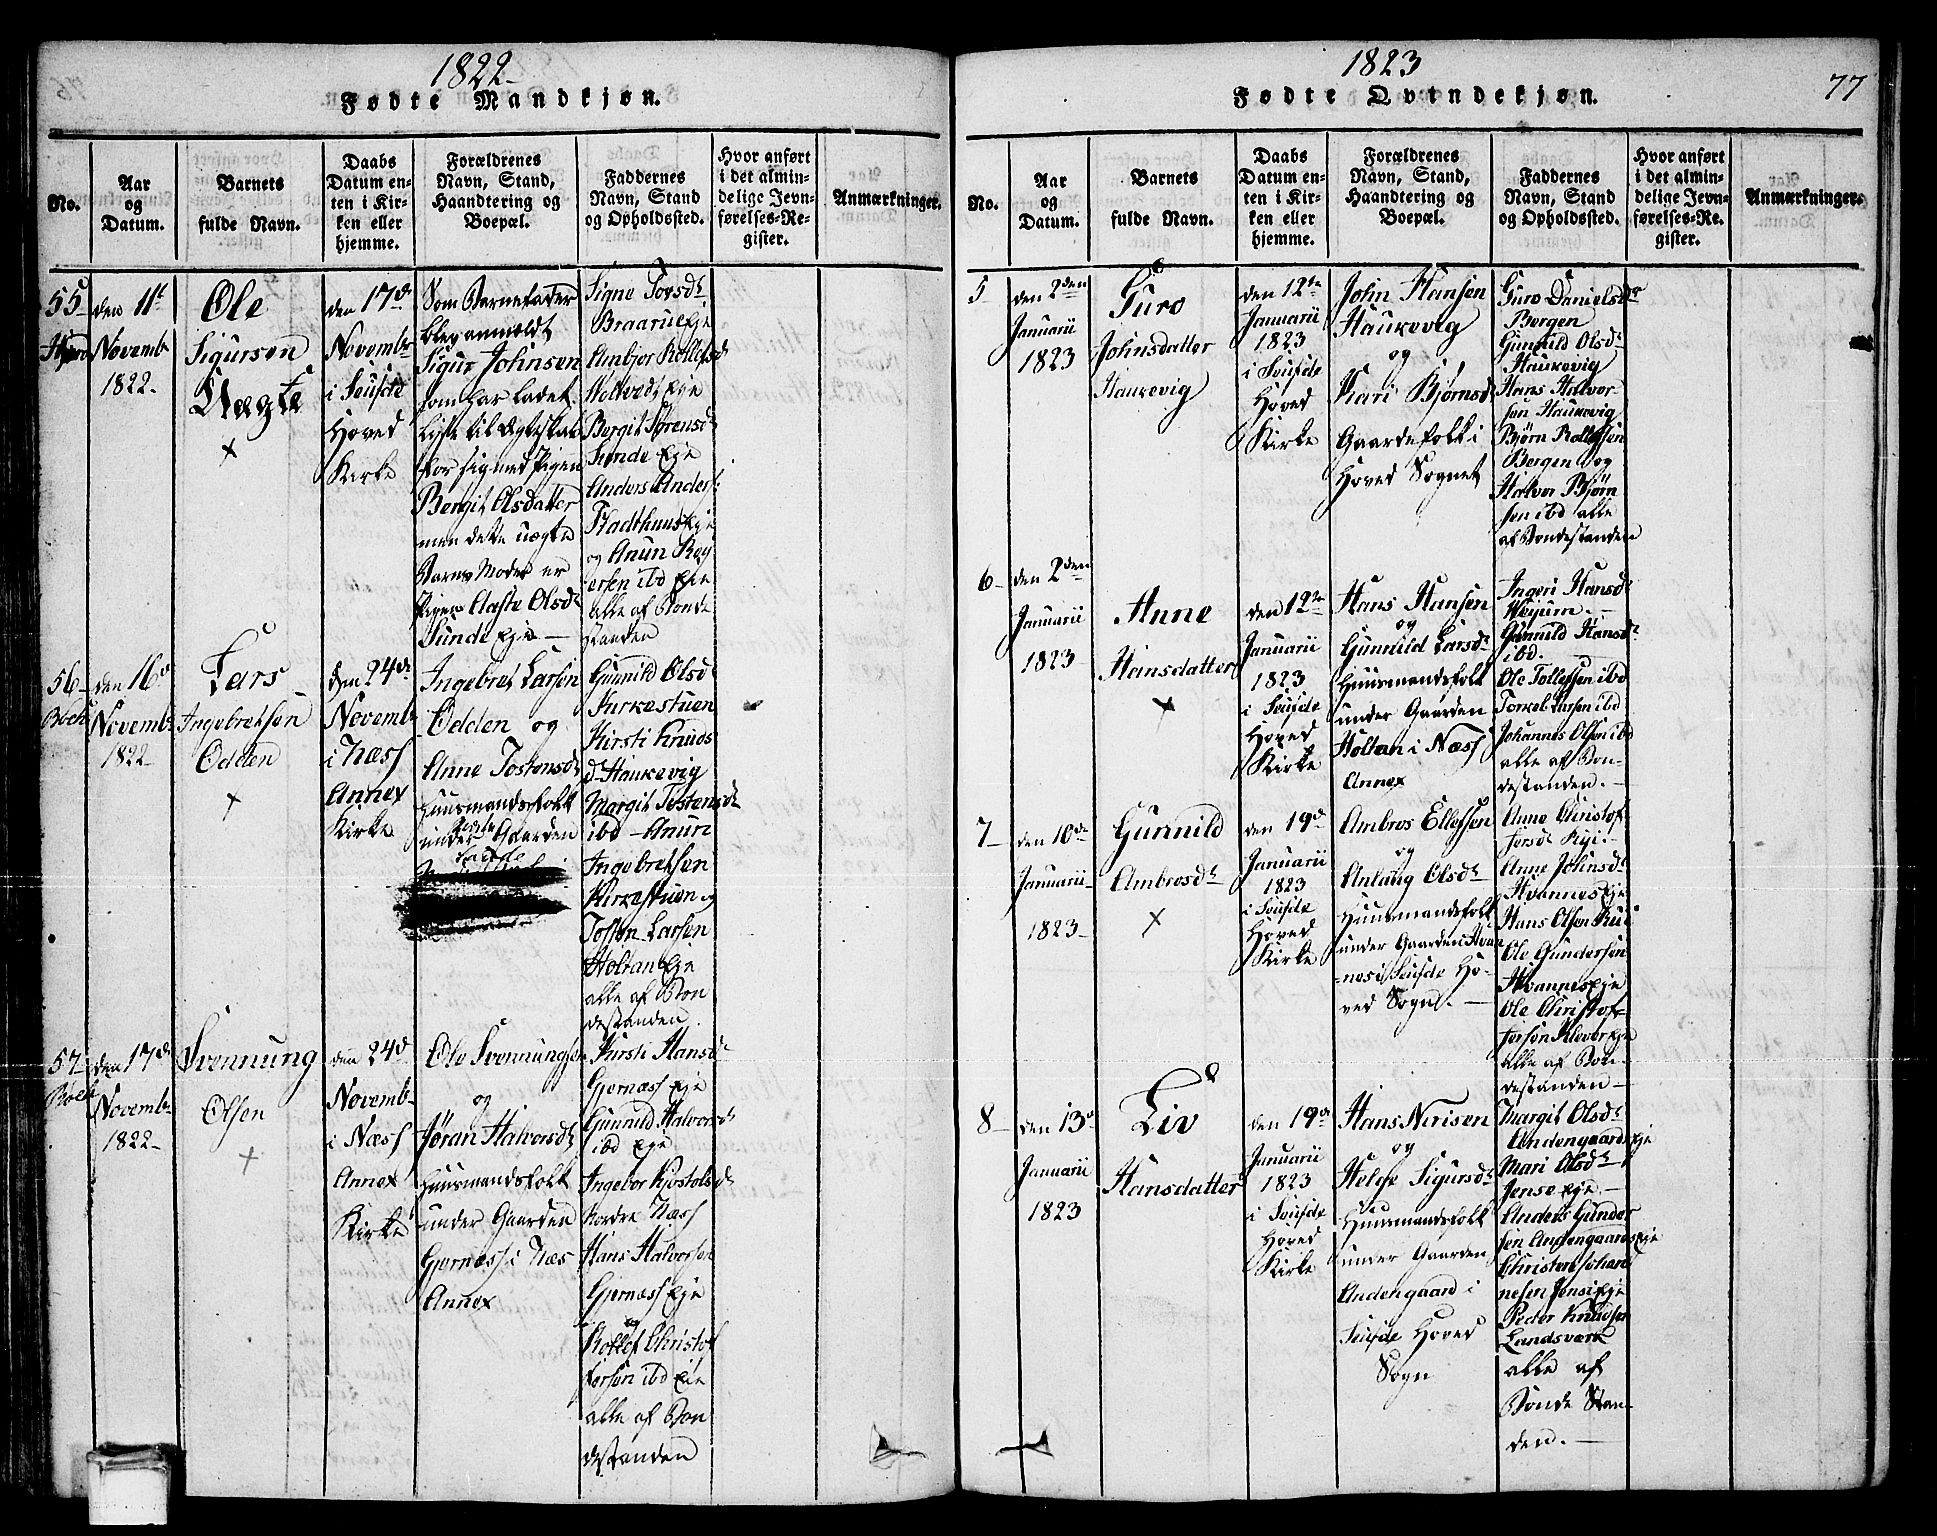 1822
Fødte Mandkjøn.
No.
Aar
og
Datum.
Barnets
fulde Navn.
Daabs
Datum en-
ten i Kir-
ken eller
hjemme.
Forældrenes
Navn, Stand,
Haandtering og
Boepæl.
Faddernes
Navn, Stand
og Opholdssted.
Hvor anført
i det almin-
delige Jevn-
førelses-Re-
gister.
Anmærkninger.
55
den 11t
Novembr
1822
Ole
Sigursen
Uægte
×
den 17de
Novembr
i Seufde
Hoved
Kirke
Som Barnefader
blev anmeldt
Sigur Johnsen
som har ladet
lyse til Ægteskab
for sig med Pigen
Bergit Olsdatter
men dette uægte
Barns Moder er
Pigen Aaste Olsd
Sunde Eje
Signe Torsdr
Braarue Eje
Anbjor Rollefsd
Holtvedt Eje
Bergit Sørensd
Sunde Eje
Anders Anders
Eje
og Anun Rey
ersen ibd Eje
alle af Bonde
standen
56
den 16de
Novembr
1822
Lars
Ingebretsen
Odden
×
den 24de
Novembr
i Næss
Annex
Kirke
Ingebret Larsen
Odden og
Anne Tostensdr
Huusmandsfolk
under Gaarden
Gunnild Olsd
Kirkestuen
Kirsti Knuds
dr Haukevig
Margit Tostensdr
ibd Anun
Ingebretsen
Kirkestuen og
Tosten Larsen
Holtan Eje
alle af Bon
destanden
57
den 17de
Novembr
1822
Svennung
Olsen
×
den 24de
Novembr
i Næss
Annex
Kirke
Ole Svennungsen
og
Jøran Halvorsdr
Huusmandsfolk
under Gaarden
Gjernæss i Næs
Annex
Kirsti Hansd
Gjernæss Eje
Gunnild Halvorsdr
ibd Eje
Ingebor Kjøstolsdr
Nordre Næss
Hans Halvorsen
Gjernæss Eje
og
Rollef Christof
fersen ibd Eje
alle af Bon
destanden
1823
77
Fødte Qvindekjøn.
No.
Aar
og
Datum.
Barnets
fulde Navn.
Daabs
Datum en-
ten i Kir-
ken eller
hjemme.
Forældrenes
Navn, Stand,
Haandtering og
Boepæl.
Faddernes
Navn, Stand
og Opholdssted.
Hvor anført
i det almin-
delige Jevn-
førelses-Re-
gister.
Anmærkninger.
5
den 2den
Januarii
1823
Guro
Johnsdatter
Haukevig
den 12te
Januarii
1823
i Seufde
Hoved
Kirke
John Hansen
Haukevig
og
Kari Bjørnsd
Gaardefolk i
Hoved Sognet
Guro Danielsdr
Bergen
Gunnild Olsdr
Haukevig
Hans Halvor
sen Haukevig
Bjørn Rollefsen
Bergen og
Halvor Bjørn
sen ibd alle
af Bondestanden
6
den 2den
Januarii
1823
Anne
Hansdatter
×
den 12te
Januarii
1823
i Seufde
Hoved
Kirke
Hans Hansen
og
Gunnild Larsdr
Huusmandsfolk
under Gaarden
Holtan i Næss
Annex
Ingeri Hansdr
Gunnild Hansdr
ibd.
Ole Tollefsen ibd
Torkel Larsen ibd
Johannes Olsen ibd
alle af Bon-
destanden.
7
den 10de
Januarii
1823
Gunnild
Ambrosdr
×
den 19de
Januarii
1823
i Seufde
Hoved
Kirke
Ambros Ellefsen
og
Anlaug Olsdr
Huusmandsfolk
under Gaarden Hvan
næs i Seufde Ho-
ved Sogn.
Anne Christof
fersdr
Anne Johnsdr
Hvannes Eje
Hans Olsen
Ole Gundersen
Hvannes Eje
Ole Christof-
fersen Klever Eje
alle af Bon-
destanden
8
den 13de
Januarii
1823
Liv
Hansdatter
den 19de
Januarii
1823
i Seufde
Hoved
Kirke
Hans Nirisen
og
Helge Sigursdr
Huusmandsfolk
under Gaarden
Andengaard i
Seufde Hoved
Sogn
Margit Olsdr
Andengaards Eje
Mari Olsdr
Jense Eje
Anders Gunder
sen Andengaards Eje
Christen Johan
nesen Jense Eje
Peder Knudsen
Landsværk
alle af
Bonde Stan-
den.